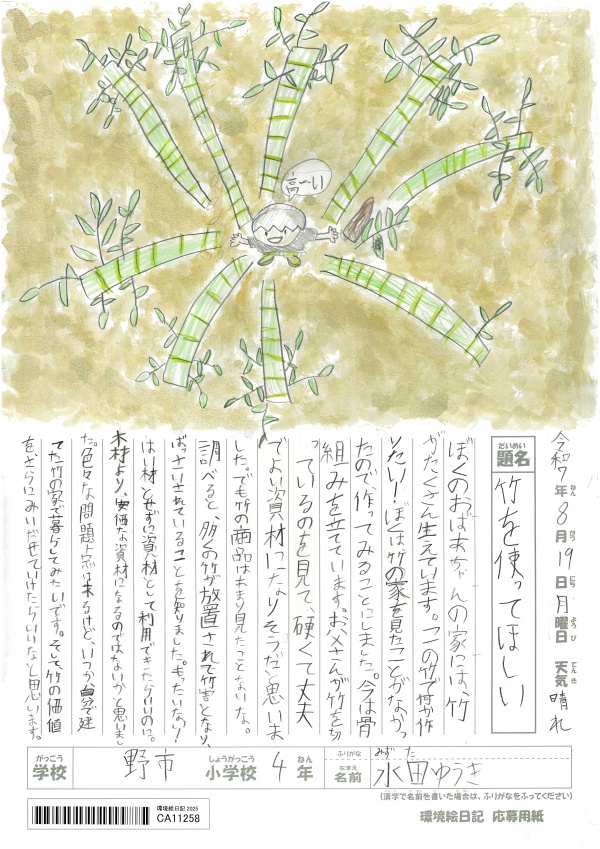 高〜い
令和7年8月19日月曜日 天気晴れ
ねん がつ にち ようび てんき
だいめい
題名
竹を使ってほしい
ぼくのおばあちゃんの家には、竹
がたくさん生えています。この竹で何か作
りたい！ぼくは竹の家を見たことがなかっ
たので、作ってみることにしました。今は骨
組みを立てています。お父さんが竹を切
っているのを見て、硬くて丈夫
でよい資材になりそうだと思いま
した。でも竹の商品はあまり見たことないな。
調べると、多くの竹が放置されて竹害となり、
ばっさいされていることを知りました。もったいない！
はい材とせずに資材として利用できたらいいのに。
木材より、安価な資材になるのではないかと思いまし
た。色々な問題点は来るけど、いつか自分で建
てた竹の家で暮らしてみたいです。そして竹の価値
をさらにみいだせていけたらいいなと思います。
がっこう
学校
野市
しょうがっこう
小学校
4
ねん
年
ふりがな
みず た
なまえ
名前
水田ゆうき
(漢字で名前を書いた場合は、ふりがなをふってください)
環境絵日記 2025
CA11258
環境絵日記 応募用紙